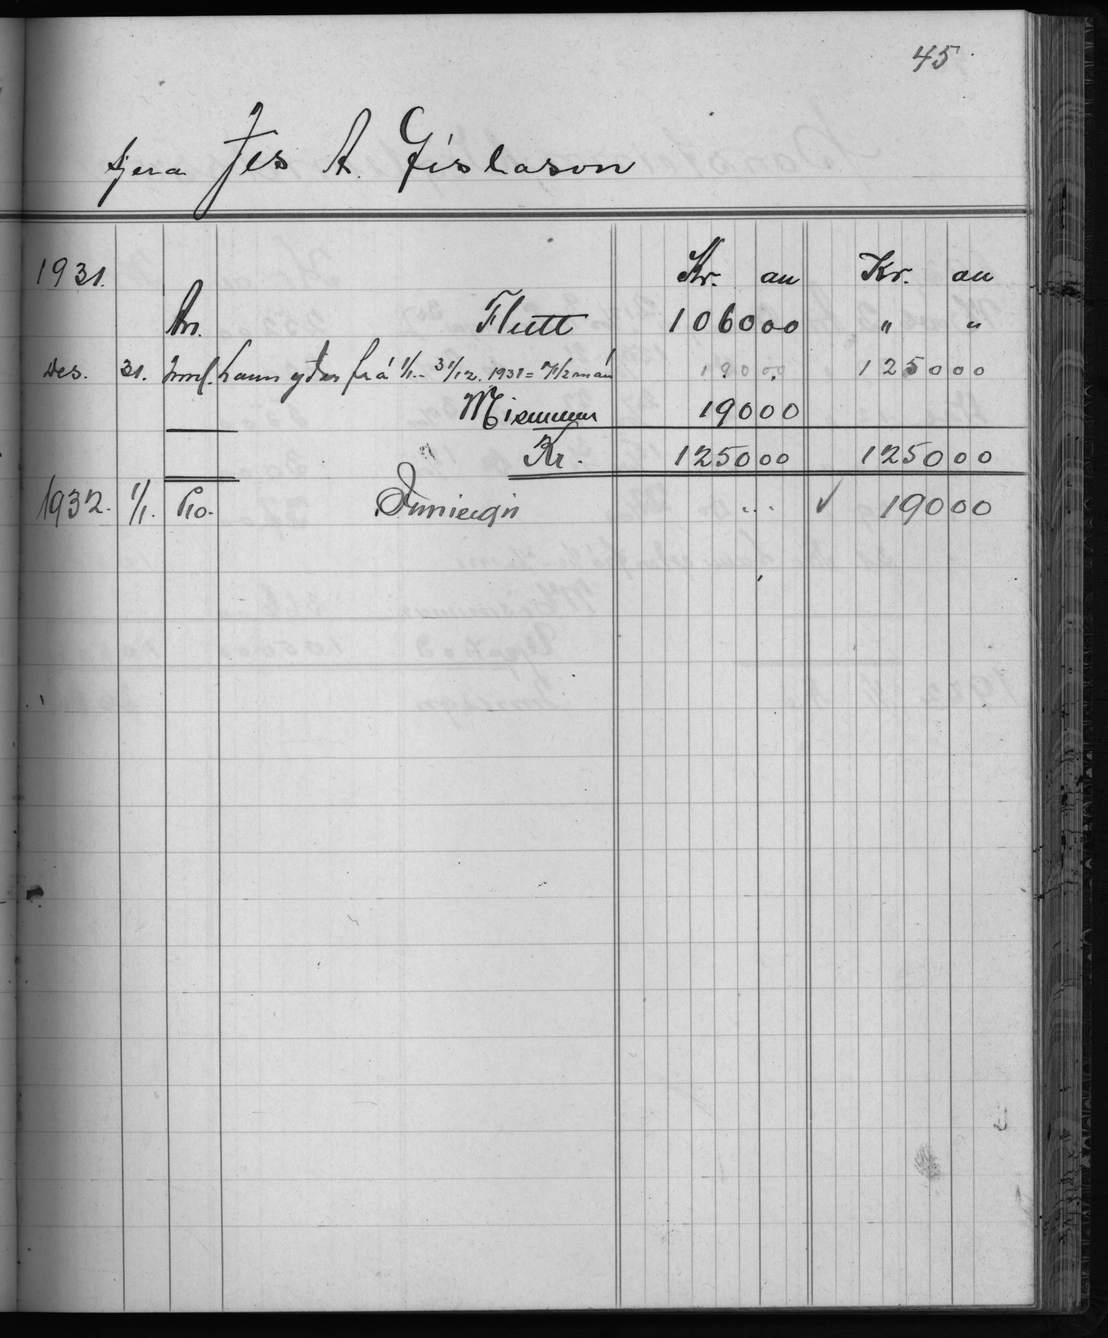 45
Séra Jes A. Gíslason
1931. Kr. au Kr. au
An. Flutt 1060 00 " "
Des. 31. Innf. laun yðar frá 1/1 - 31/12. 1931 = 7 1/2 mán 1250 00
Mismunur 190 00
Kr. 1250 00 1250 00
1932. 1/1. Pr. Innieign ... ✓ 190 00